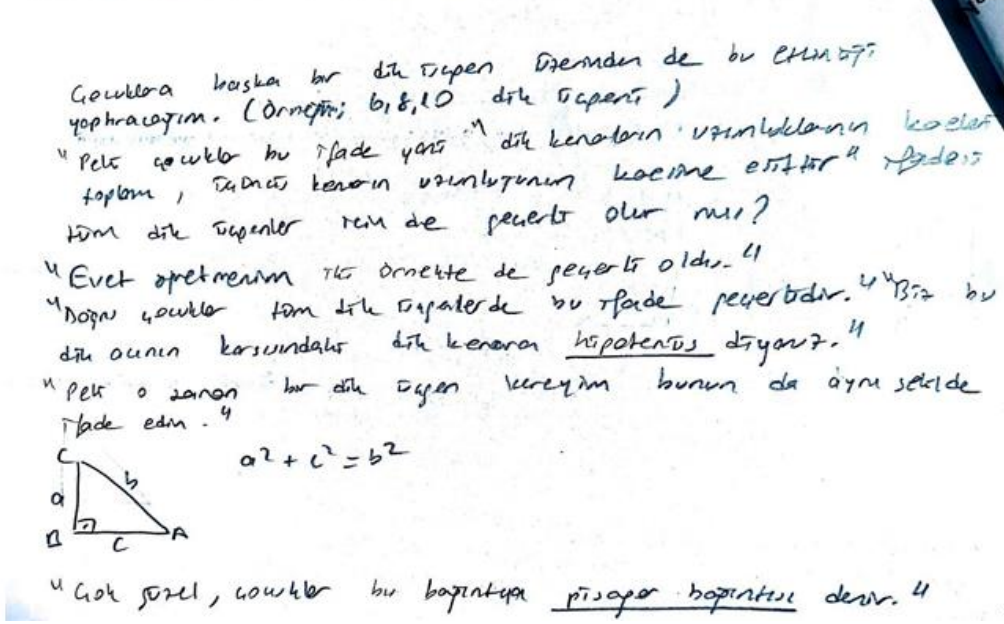 Çocuklara başka bir dik üçgen üzerinden de bu etkinliği
yaptıracağım. (Örneğin; 6,8,10 dik üçgeni)
"Peki çocuklar bu ifade yani "dik kenarların uzunluklarının kareleri
toplamı, üçüncü kenarın uzunluğunun karesine eşittir" ifadesi
tüm dik üçgenler için de geçerli olur mu?
"Evet öğretmenim iki örnekte de geçerli oldu."
"Doğru çocuklar tüm dik üçgenlerde bu ifade geçerlidir." "Biz bu
dik açının karşısındaki dik kenara hipotenüs diyoruz."
"Peki o zaman bir dik üçgen vereyim bunun da aynı şekilde
ifade edin."
a² + c² = b²
C
b
a
B
c
A
"Çok güzel, çocuklar bu bağıntıya pisagor bağıntısı denir."